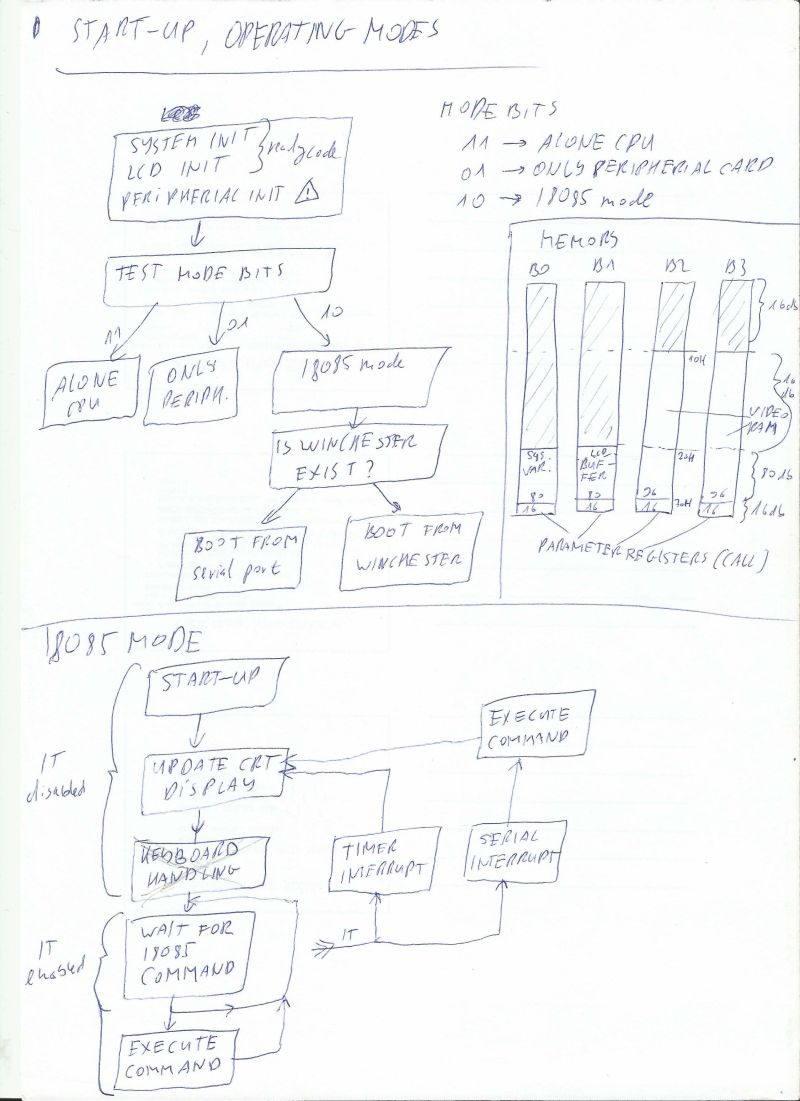 START-UP, OPERATING MODES
SYSTEM INIT
LCD INIT
PERIPHERIAL INIT
TEST MODE BITS
11
01
10
ALONE
CPU
ONLY
PERIPH.
I8085 mode
IS WINCHESTER
EXIST?
BOOT FROM
serial port
BOOT FROM
WINCHESTER
MODE BITS
11 → ALONE CPU
01 → ONLY PERIPHERIAL CARD
10 → I8085 mode
MEMORY
B0 B1 B2 B3
10H
VIDEO
RAM
SYS.
VAR.
LCD
BUF-
FER
20H
80 80 96 96
16 16 16 16
PARAMETER REGISTERS (CALL)
I8085 MODE
START-UP
IT
disabled
UPDATE CRT
DISPLAY
KEYBOARD
HANDLING
TIMER
INTERRUPT
SERIAL
INTERRUPT
EXECUTE
COMMAND
IT
IT
enabled
WAIT FOR
I8085
COMMAND
EXECUTE
COMMAND